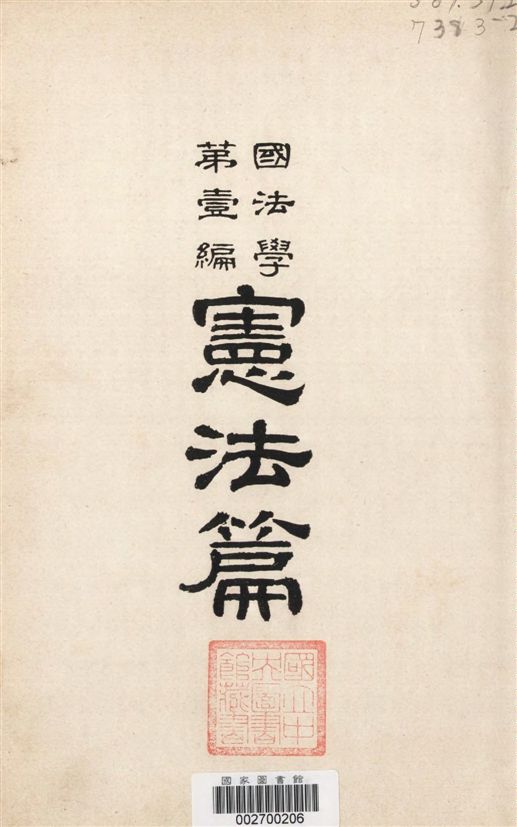 7383-2
國法學
第壹編
憲法篇
國立中
央圖書
館藏書
國家圖書館
002700206